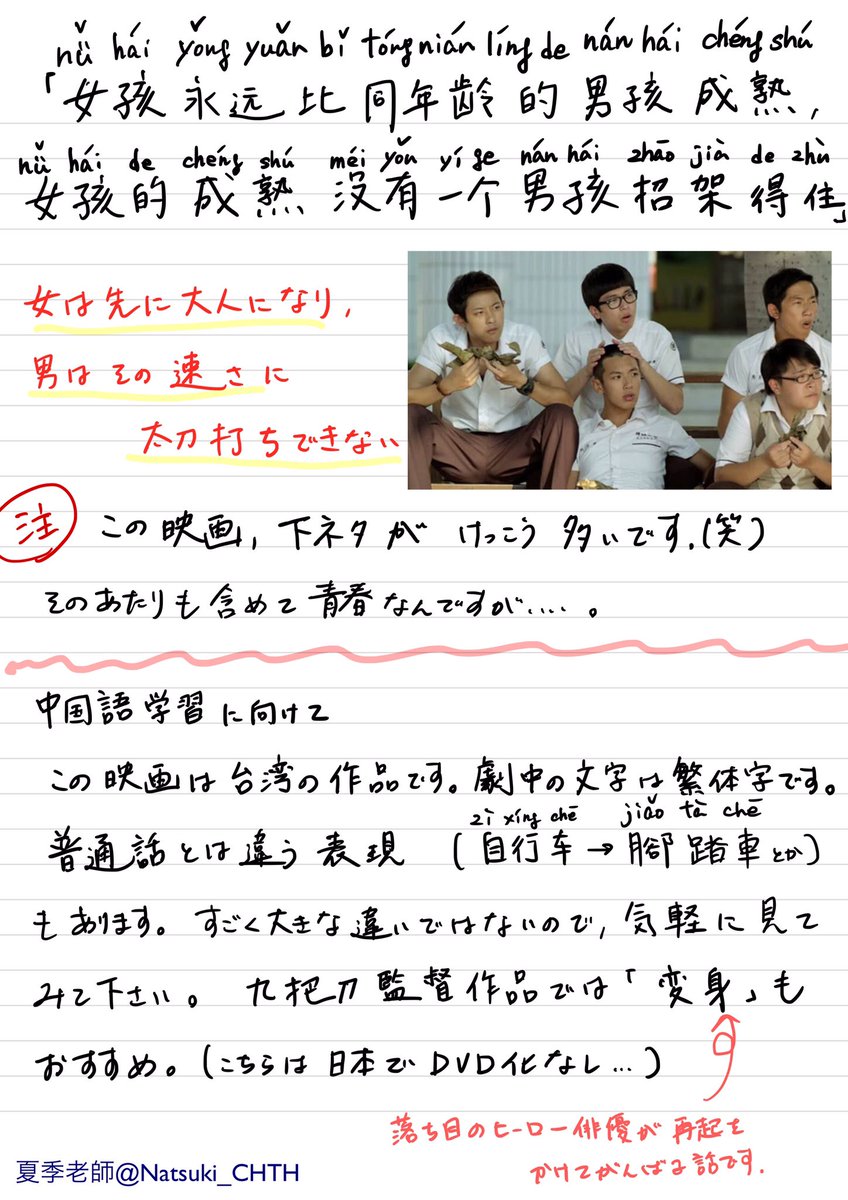 nǚ hái yǒng yuǎn bǐ tóng nián líng de nán hái chéng shú
「女孩永远比同年龄的男孩成熟,
nǚ hái de chéng shú méi yǒu yí ge nán hái zhāo jià de zhù
女孩的成熟没有一个男孩招架得住」
女は先に大人になり,
男はその速さに
太刀打ちできない
注 この映画, 下ネタが けっこう 多いです.(笑)
そのあたりも含めて青春なんですが‥‥。
中国語学習に向けて
この映画は台湾の作品です。劇中の文字は繁体字です。
zì xíng chē jiǎo tà chē
普通話とは違う表現 (自行车→腳踏車とか)
もあります。すごく大きな違いではないので, 気軽に見て
みて下さい。九把刀監督作品では「変身」も
おすすめ。(こちらは日本でDVD化なし…)
落ち目のヒーロー俳優が再起を
かけてがんばる話です.
夏季老師@Natsuki_CHTH